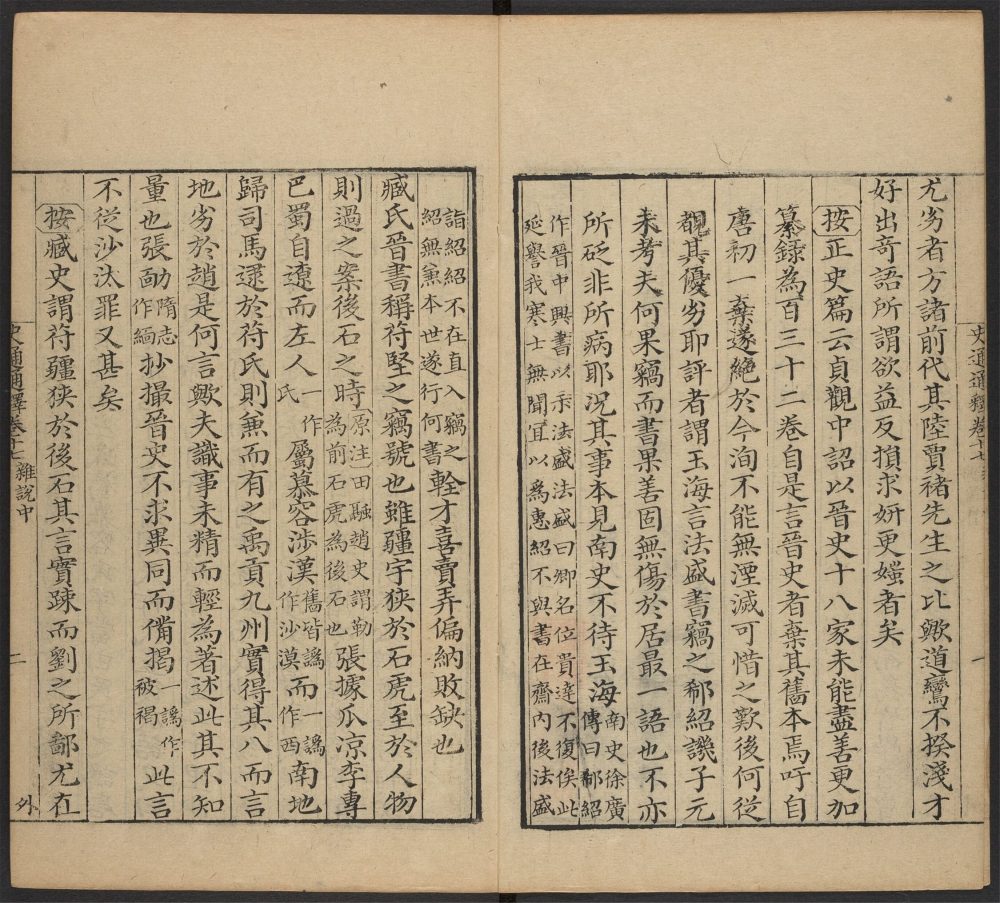 史通通釋卷十七
一
尤劣者方諸前代其陸賈褚先生之比歟道鸞不揆淺才
好出奇語所謂欲益反損求妍更媸者矣
按正史篇云貞觀中詔以晉史十八家未能盡善更加
纂錄為百三十二卷自是言晉史者棄其舊本焉吁自
唐初一棄遂絶於今洵不能無湮滅可惜之歎後何從
覩其優劣耶評者謂玉海言法盛書竊之郗紹譏子元
未考夫何果竊而書果善固無傷於居最一語也不亦
所砭非所病耶况其事本見南史不待玉海南史徐廣傳曰郗紹
作晉中興書以示法盛法盛曰卿名位貴達不復俟此
延譽我寒士無聞宜以為惠紹不與書在齋內後法盛
詣紹紹不在直入竊之
紹無兼本世遂行何書輇才喜賣弄偏納敗缺也
臧氏晉書稱苻堅之竊號也雖疆宇狹於石虎至於人物
則過之案後石之時原注田融趙史謂勒為前石虎為後石也張據瓜凉李專
巴蜀自遼而左人一作氏屬慕容涉漢舊皆譌作沙漠而一譌作西南地
歸司馬逮於苻氏則兼而有之禹貢九州實得其八而言
地劣於趙是何言歟夫識事未精而輕為著述此其不知
量也張勔隋志作緬抄撮晉史不求異同而備揭一譌作被褐此言
不從沙汰罪又甚矣
按臧史謂苻疆狹於後石其言實疎而劉之所鄙尤在
史通通釋卷十七 雜說中
二
外